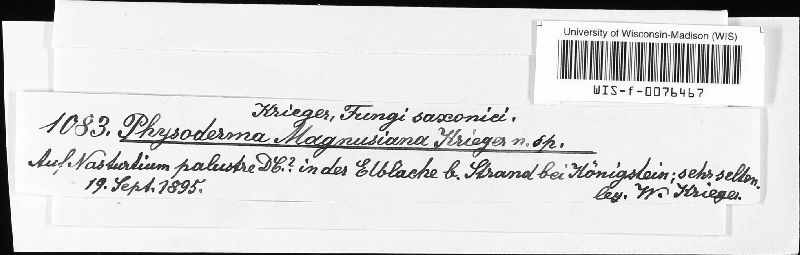 University of Wisconsin-Madison (WIS)
WIS-f-0076467
Krieger, Fungi saxonici.
1083. Physoderma Magnusiana Krieger n. sp.
Auf Nasturtium palustre DC? in der Elblache b. Strand bei Königstein; sehr selten.
19. Sept. 1895.
leg. W. Krieger.